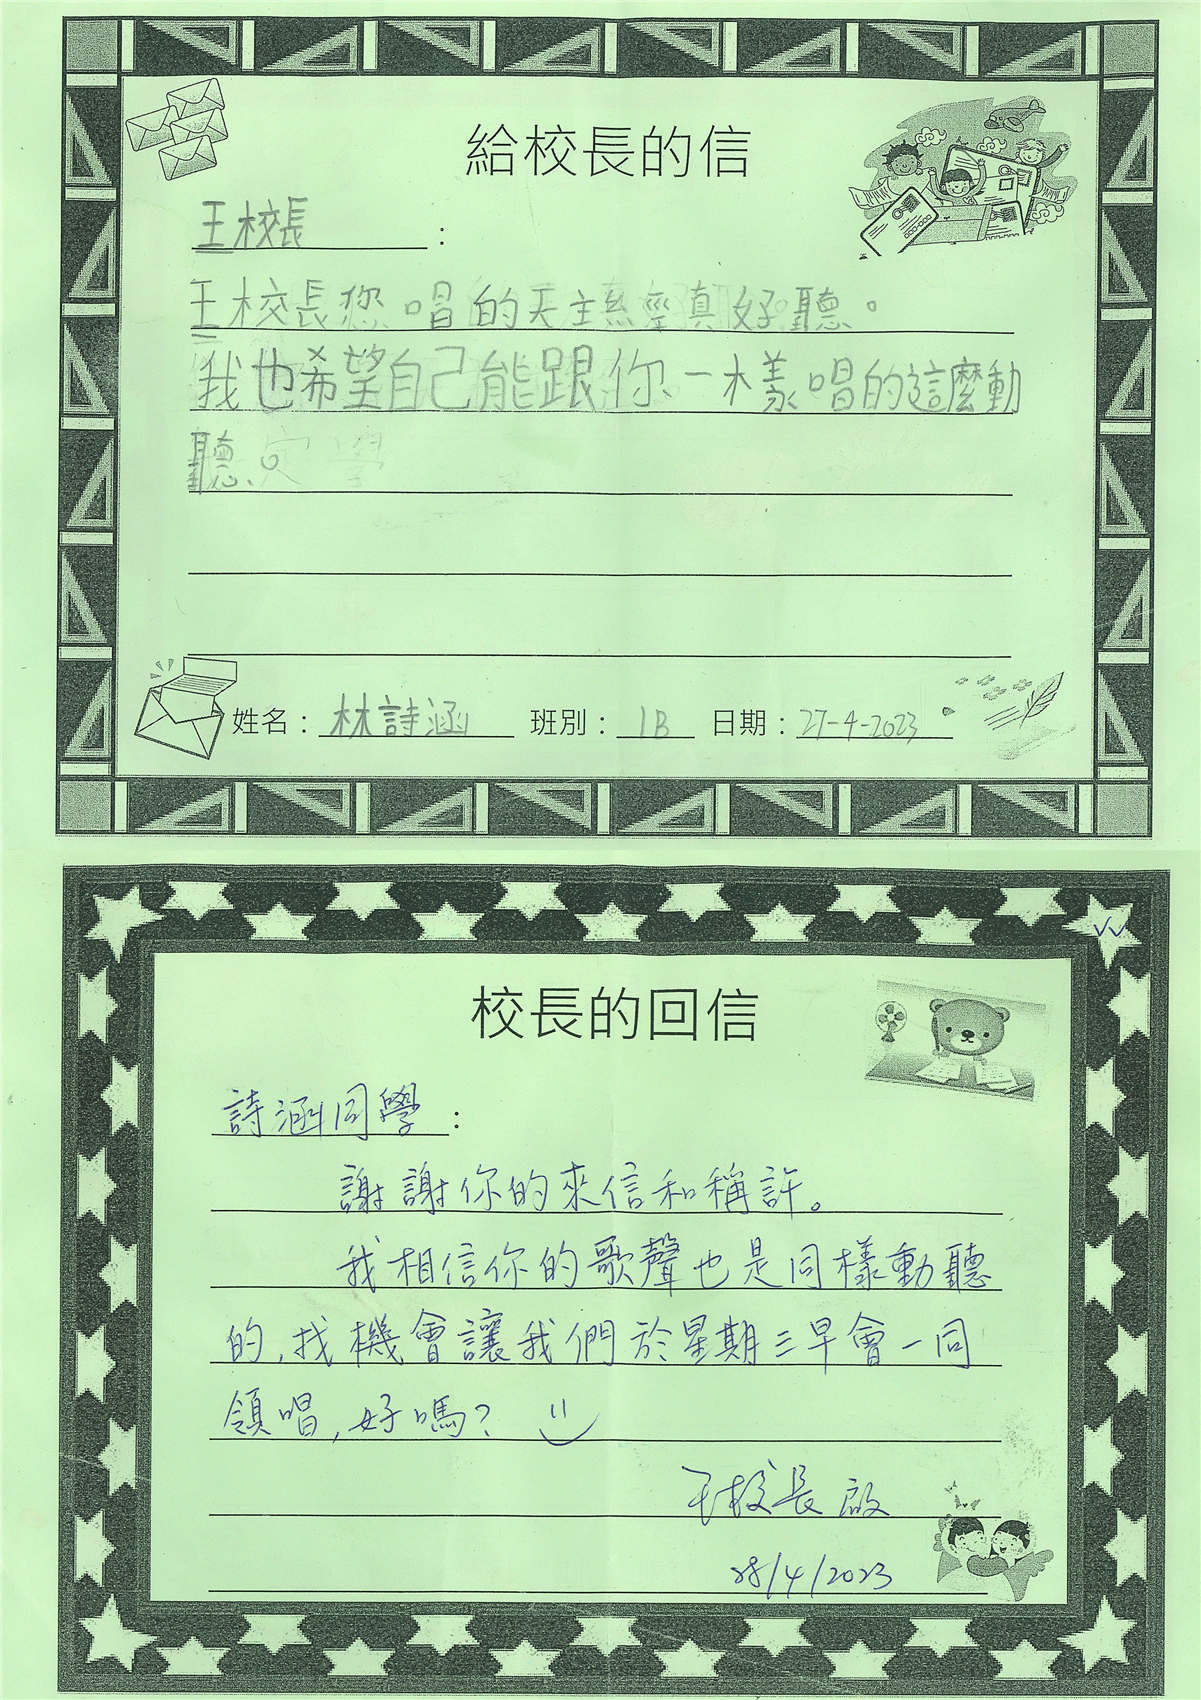 給校長的信
王校長：
王校長您唱的天主經真好聽。
我也希望自己能跟你一樣唱的這麼動
聽。
姓名：林詩涵 班別：1B 日期：27-4-2023
校長的回信
詩涵同學：
謝謝你的來信和稱許。
我相信你的歌聲也是同樣動聽
的，找機會讓我們於星期三早會一同
領唱，好嗎？
王校長啟
28/4/2023